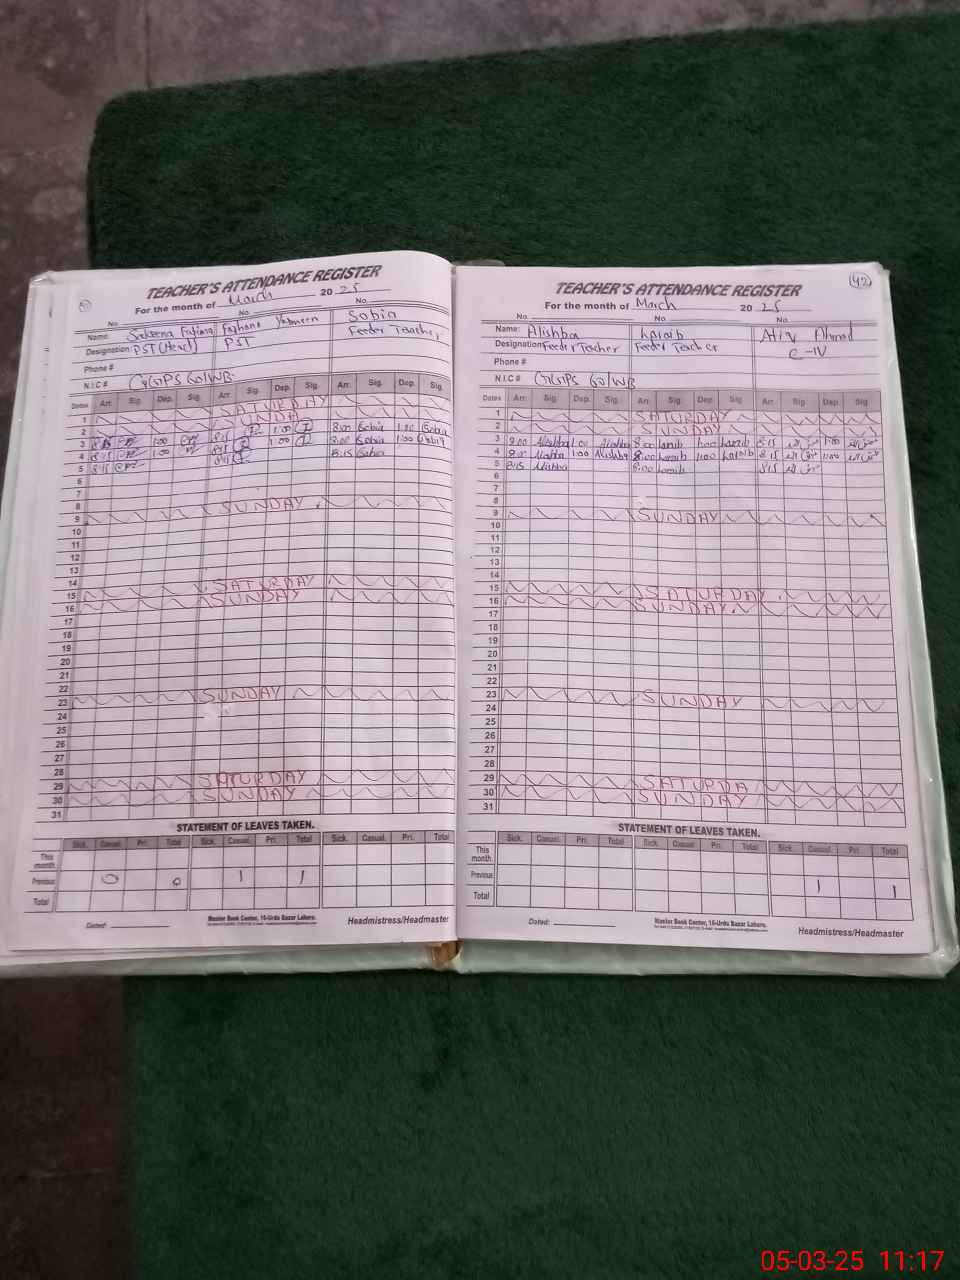 TEACHER'S ATTENDANCE REGISTER
For the month of March 20 25
No. No. No.
Name: Sakeena Fatima Farhana Yasmeen Sobia
Designation: PST (Head) PST Feeder Teacher
Phone #
N.I.C # GGPS 60/WB
Dates Arr. Sig. Dep. Sig. Arr. Sig. Dep. Sig. Arr. Sig. Dep. Sig.
1 SATURDAY
2
3 8:15 1:00 8:15 1:00 8:00 Sobia 1:00 Sobia
4 8:15 1:00 8:15 1:00 8:00 Sobia 1:00 Sobia
5 8:15 8:15 8:15 Sobia
6
7
8
9 SUNDAY
10
11
12
13
14
15 SATURDAY
16 SUNDAY
17
18
19
20
21
22
23 SUNDAY
24
25
26
27
28
29 SATURDAY
30 SUNDAY
31
STATEMENT OF LEAVES TAKEN.
Sick. Casual. Pri. Total Sick. Casual. Pri. Total Sick. Casual. Pri. Total
This month
Previous 0 0 1 1
Total
Dated:
Master Book Center, 10-Urdu Bazar Lahore.
Headmistress/Headmaster
42
TEACHER'S ATTENDANCE REGISTER
For the month of March 20 25
No. No. No.
Name: Alishba Laraib Atiq Ahmad
Designation Feeder Teacher Feeder Teacher C-IV
Phone #
N.I.C # GGPS 60/WB
Dates Arr. Sig. Dep. Sig. Arr. Sig. Dep. Sig. Arr. Sig. Dep. Sig
1 SATURDAY
2 SUNDAY
3 8:00 Alishba 1:00 Alishba 8:00 Laraib 1:00 Laraib 8:15 1:00
4 8:00 Alishba 1:00 Alishba 8:00 Laraib 1:00 Laraib 8:15 1:00
5 8:15 Alishba 8:00 Laraib 8:15
6
7
8
9 SUNDAY
10
11
12
13
14
15 SATURDAY
16 SUNDAY
17
18
19
20
21
22
23 SUNDAY
24
25
26
27
28
29 SATURDA
30 SUNDAY
31
STATEMENT OF LEAVES TAKEN.
Sick. Casual. Pri. Total Sick. Casual. Pri. Total Sick. Casual. Pri. Total
This month
Previous 1 1
Total
Dated:
Master Book Center, 10-Urdu Bazar Lahore.
Headmistress/Headmaster
05-03-25 11:17